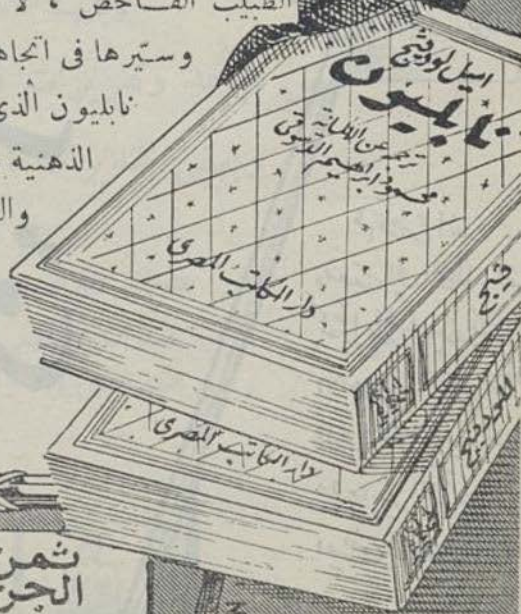 الطبيب الفاحص ، لا
وستيرها فى اتجاه
نابليون الذى
الذهنية
وال
اميل لودڤيج
نابليون
ترجمه عن الألمانية
محمود ابراهيم الدسوقى
دار الكاتب المصرى
ڤيج
دار الكاتب المصرى
ثمن
الجز